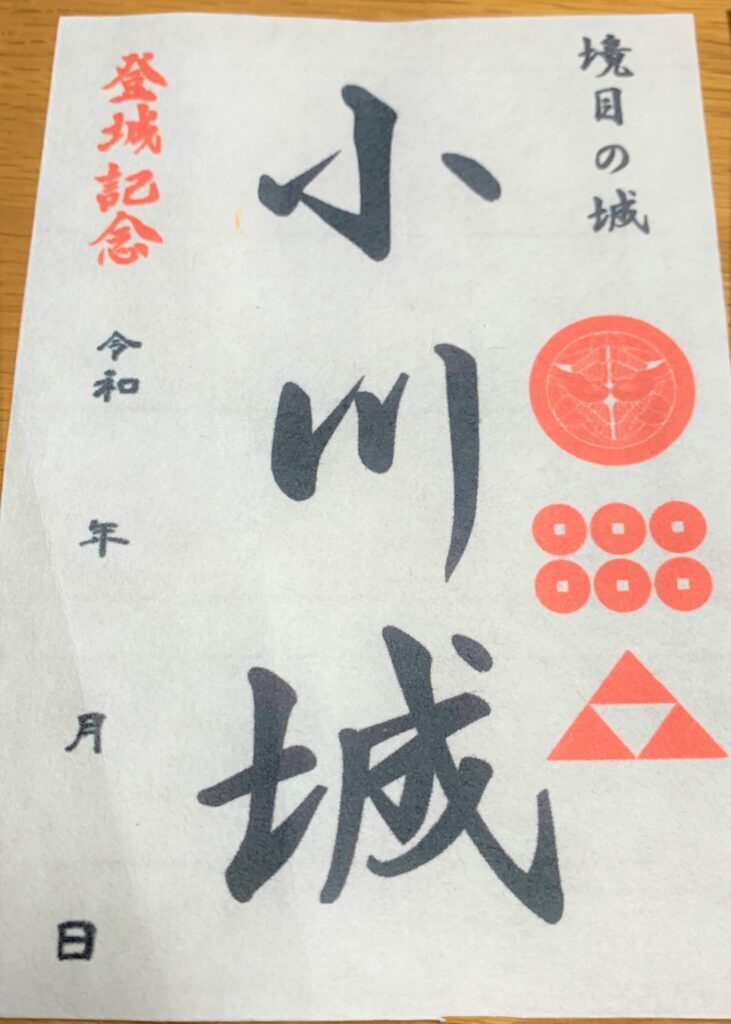 境目の城
小川城
登城記念
令和 年 月 日